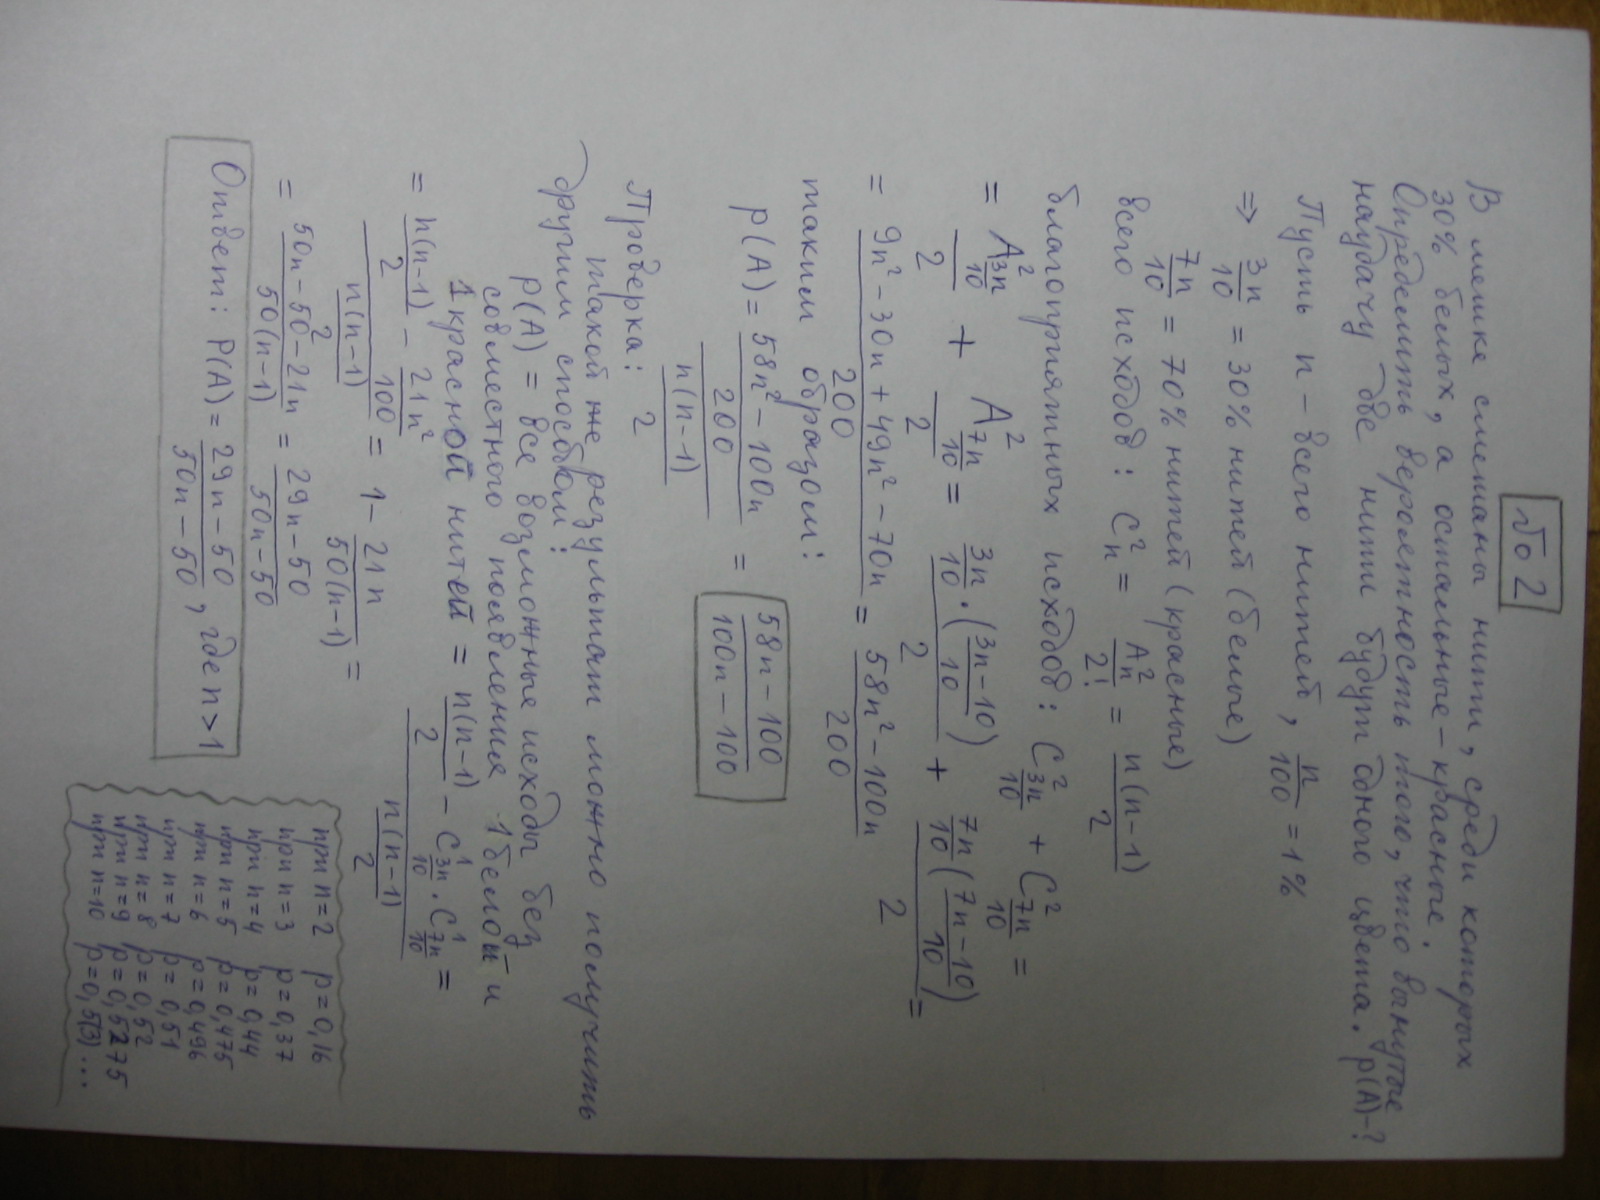 № 2
В мешке смешаны нити, среди которых
30% белых, а остальные – красные.
Определить вероятность того, что вынутые
наудачу две нити будут одного цвета. p(A)-?
Пусть n – всего нитей, n/100 = 1%
⇒ 3n/10 = 30% нитей (белые)
7n/10 = 70% нитей (красные)
всего исходов: C²ₙ = Aₙ²/2! = n(n-1)/2
благоприятных исходов: C²_(3n/10) + C²_(7n/10) =
= A²_(3n/10)/2 + A²_(7n/10)/2 = 3n/10·(3n-10/10)/2 + 7n/10(7n-10/10)/2 =
= 9n²-30n+49n²-70n/200 = 58n²-100n/200
таким образом:
p(A) = (58n²-100n/200)/(n(n-1)/2) = 58n-100/100n-100
Проверка:
такой же результат можно получить
другим способом:
p(A) = все возможные исходы без
совместного появления 1 белой и
1 красной нитей = (n(n-1)/2 - C¹_(3n/10)·C¹_(7n/10))/(n(n-1)/2) =
= (n(n-1)/2 - 21n²/100)/(n(n-1)/2) = 1 - 21n/50(n-1) =
= 50n-50-21n/50(n-1) = 29n-50/50n-50
Ответ: P(A) = 29n-50/50n-50, где n>1
при n=2 p=0,16
при n=3 p=0,37
при n=4 p=0,44
при n=5 p=0,475
при n=6 p=0,496
при n=7 p=0,51
при n=8 p=0,52
при n=9 p=0,5275
при n=10 p=0,5(3)...